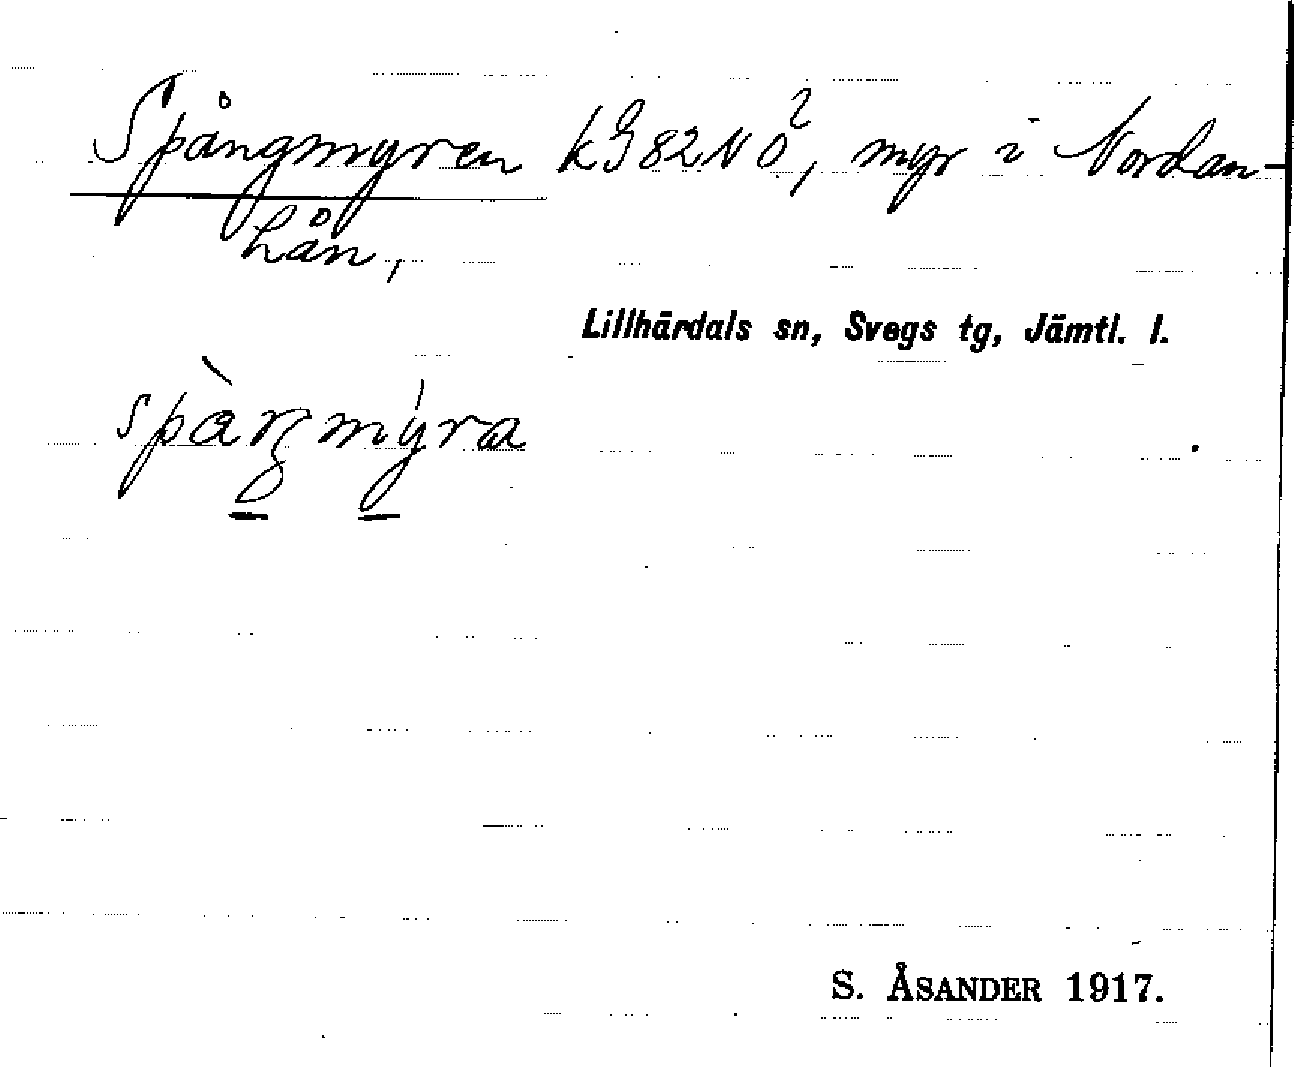 Spångmyren kG82NO², myr i Nordan-
hån,
Lillhärdals sn, Svegs tg, Jämtl. l.
spàŋmýra
S. ÅSANDER 1917.